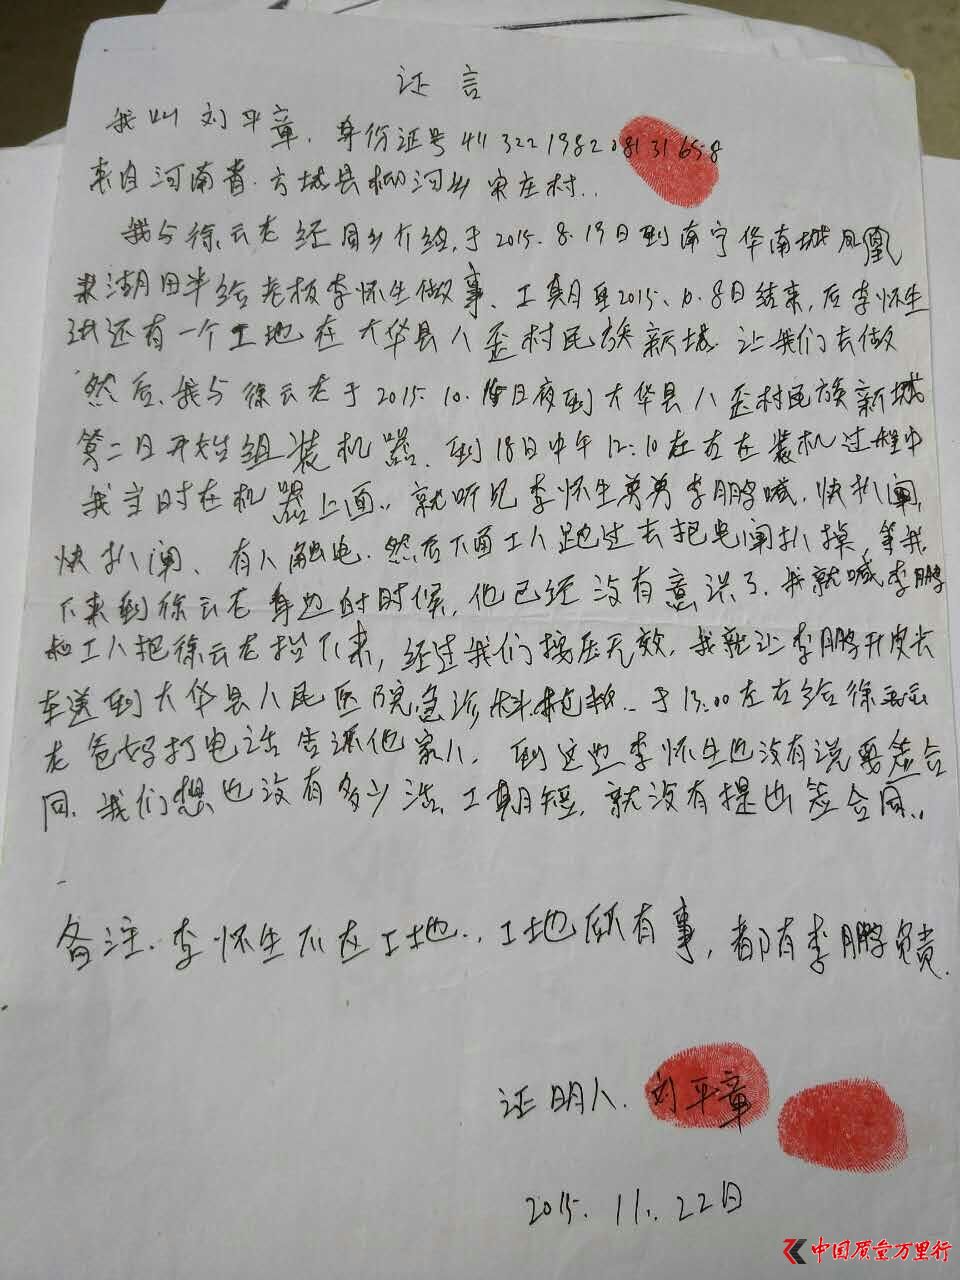 证言
我叫刘平章. 身份证号 411322198208131658
来自河南省. 方城县柳河乡宋庄村..
我与徐云老经同乡介绍, 于2015.8.19日到南宁华南城凤凰
湖田半给老板李怀生做事、工期至2015.10.8日结束, 后李怀生
还有一个工地在大华县八歪村民族新城 让我们去做
然后, 我与徐云老于2015.10.15日夜到大华县八歪村民族新城
第二日开始组装机器. 到18日中午12:10左右在装机过程中
我当时在机器上面.. 就听见李怀生弟弟李鹏喊. 快扒闸,
快扒闸、有人触电. 然后下面工人跑过去把电闸扒掉, 等我
下来到徐云老身边的时候, 他已经没有意识了. 我就喊李鹏
和工人把徐云老抬下来, 经过我们按压无效, 我就让李鹏开皮卡
车送到大华县人民医院急诊科抢救.. 于13:00左右给徐云
老爸妈打电话告诉他家人. 到这边李怀生也没有说要签合
同. 我们想也没有多少活. 工期短, 就没有提出签合同..
备注. 李怀生不在工地., 工地所有事, 都有李鹏负责.
证明人. 刘平章
2015. 11. 22日
中国质量万里行